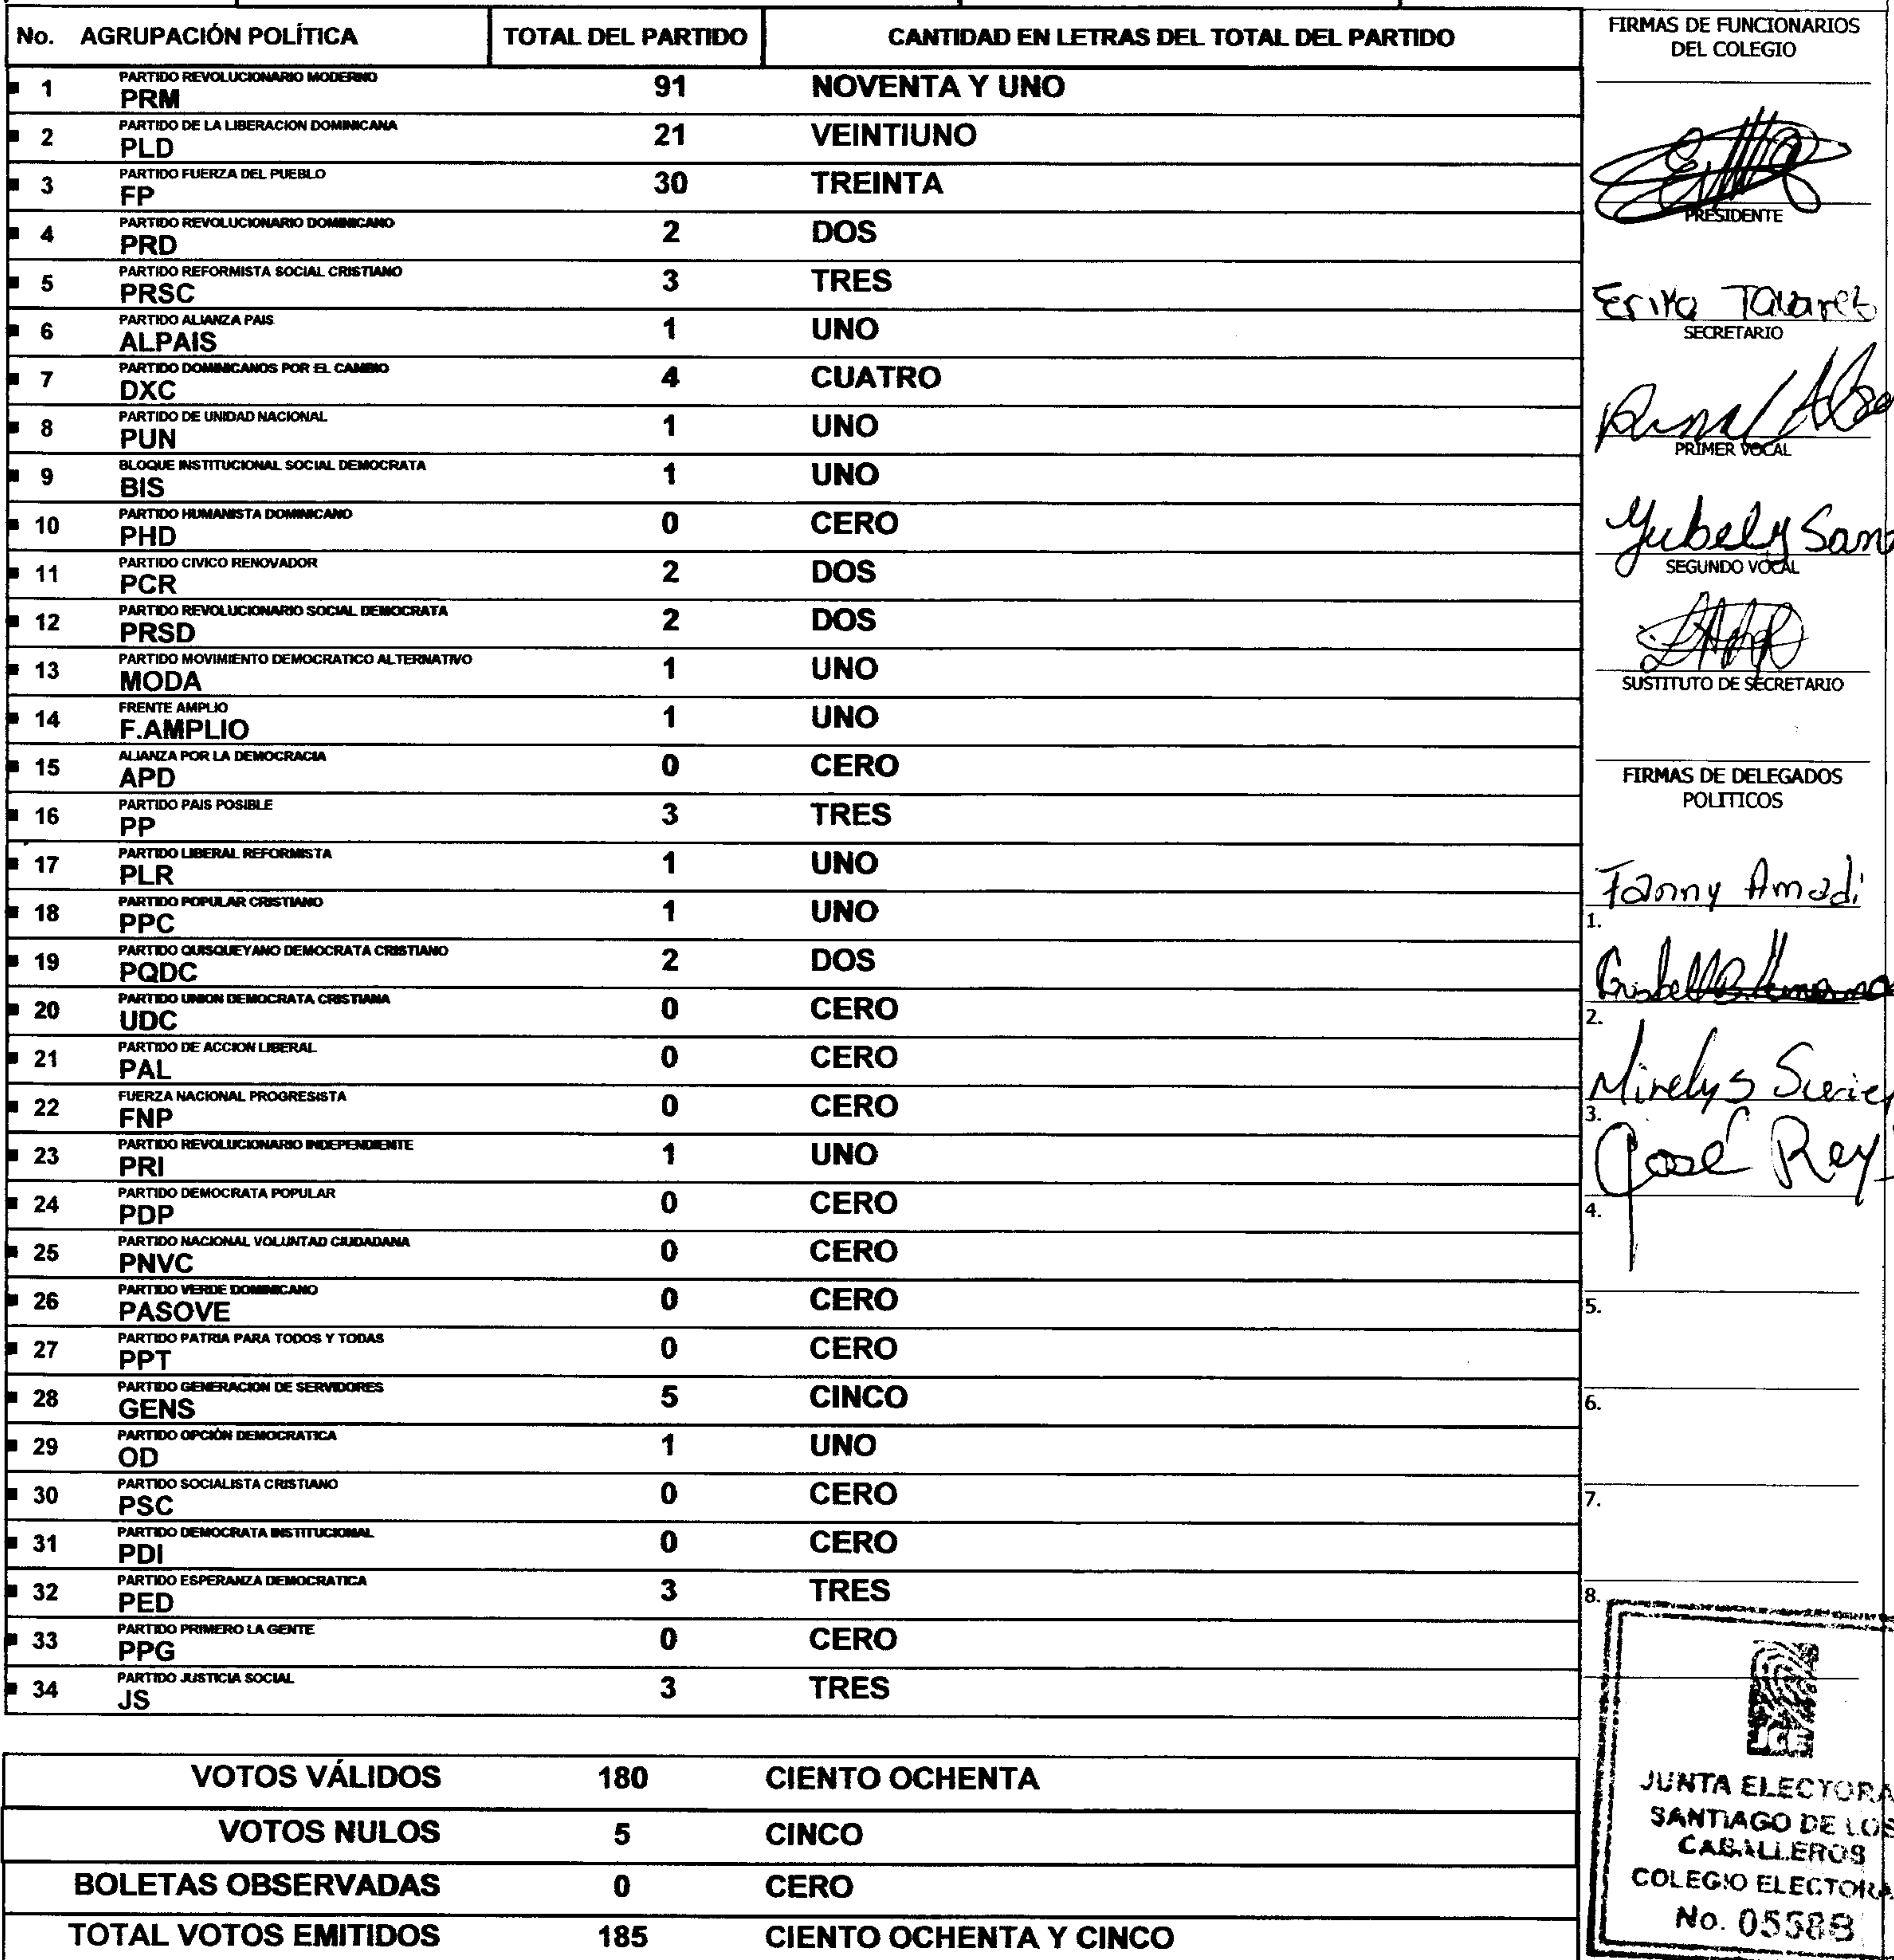 No. AGRUPACIÓN POLÍTICA TOTAL DEL PARTIDO CANTIDAD EN LETRAS DEL TOTAL DEL PARTIDO
PARTIDO REVOLUCIONARIO MODERNO
1 PRM 91 NOVENTA Y UNO
PARTIDO DE LA LIBERACION DOMINICANA
2 PLD 21 VEINTIUNO
PARTIDO FUERZA DEL PUEBLO
3 FP 30 TREINTA
PARTIDO REVOLUCIONARIO DOMINICANO
4 PRD 2 DOS
PARTIDO REFORMISTA SOCIAL CRISTIANO
5 PRSC 3 TRES
PARTIDO ALIANZA PAIS
6 ALPAIS 1 UNO
PARTIDO DOMINICANOS POR EL CAMBIO
7 DXC 4 CUATRO
PARTIDO DE UNIDAD NACIONAL
8 PUN 1 UNO
BLOQUE INSTITUCIONAL SOCIAL DEMOCRATA
9 BIS 1 UNO
PARTIDO HUMANISTA DOMINICANO
10 PHD 0 CERO
PARTIDO CIVICO RENOVADOR
11 PCR 2 DOS
PARTIDO REVOLUCIONARIO SOCIAL DEMOCRATA
12 PRSD 2 DOS
PARTIDO MOVIMIENTO DEMOCRATICO ALTERNATIVO
13 MODA 1 UNO
FRENTE AMPLIO
14 F.AMPLIO 1 UNO
ALIANZA POR LA DEMOCRACIA
15 APD 0 CERO
PARTIDO PAIS POSIBLE
16 PP 3 TRES
PARTIDO LIBERAL REFORMISTA
17 PLR 1 UNO
PARTIDO POPULAR CRISTIANO
18 PPC 1 UNO
PARTIDO QUISQUEYANO DEMOCRATA CRISTIANO
19 PQDC 2 DOS
PARTIDO UNION DEMOCRATA CRISTIANA
20 UDC 0 CERO
PARTIDO DE ACCION LIBERAL
21 PAL 0 CERO
FUERZA NACIONAL PROGRESISTA
22 FNP 0 CERO
PARTIDO REVOLUCIONARIO INDEPENDIENTE
23 PRI 1 UNO
PARTIDO DEMOCRATA POPULAR
24 PDP 0 CERO
PARTIDO NACIONAL VOLUNTAD CIUDADANA
25 PNVC 0 CERO
PARTIDO VERDE DOMINICANO
26 PASOVE 0 CERO
PARTIDO PATRIA PARA TODOS Y TODAS
27 PPT 0 CERO
PARTIDO GENERACION DE SERVIDORES
28 GENS 5 CINCO
PARTIDO OPCIÓN DEMOCRATICA
29 OD 1 UNO
PARTIDO SOCIALISTA CRISTIANO
30 PSC 0 CERO
PARTIDO DEMOCRATA INSTITUCIONAL
31 PDI 0 CERO
PARTIDO ESPERANZA DEMOCRATICA
32 PED 3 TRES
PARTIDO PRIMERO LA GENTE
33 PPG 0 CERO
PARTIDO JUSTICIA SOCIAL
34 JS 3 TRES
VOTOS VÁLIDOS 180 CIENTO OCHENTA
VOTOS NULOS 5 CINCO
BOLETAS OBSERVADAS 0 CERO
TOTAL VOTOS EMITIDOS 185 CIENTO OCHENTA Y CINCO
FIRMAS DE FUNCIONARIOS
DEL COLEGIO
PRESIDENTE
Erika Tavarez
SECRETARIO
PRIMER VOCAL
Yubely San
SEGUNDO VOCAL
SUSTITUTO DE SECRETARIO
FIRMAS DE DELEGADOS
POLITICOS
Fanny Amadi
1.
2.
Mirelys
3.
José Rey
4.
5.
6.
7.
8.
JCE
JUNTA ELECTORA
SANTIAGO DE LOS
CABALLEROS
COLEGIO ELECTORA
No. 0558B